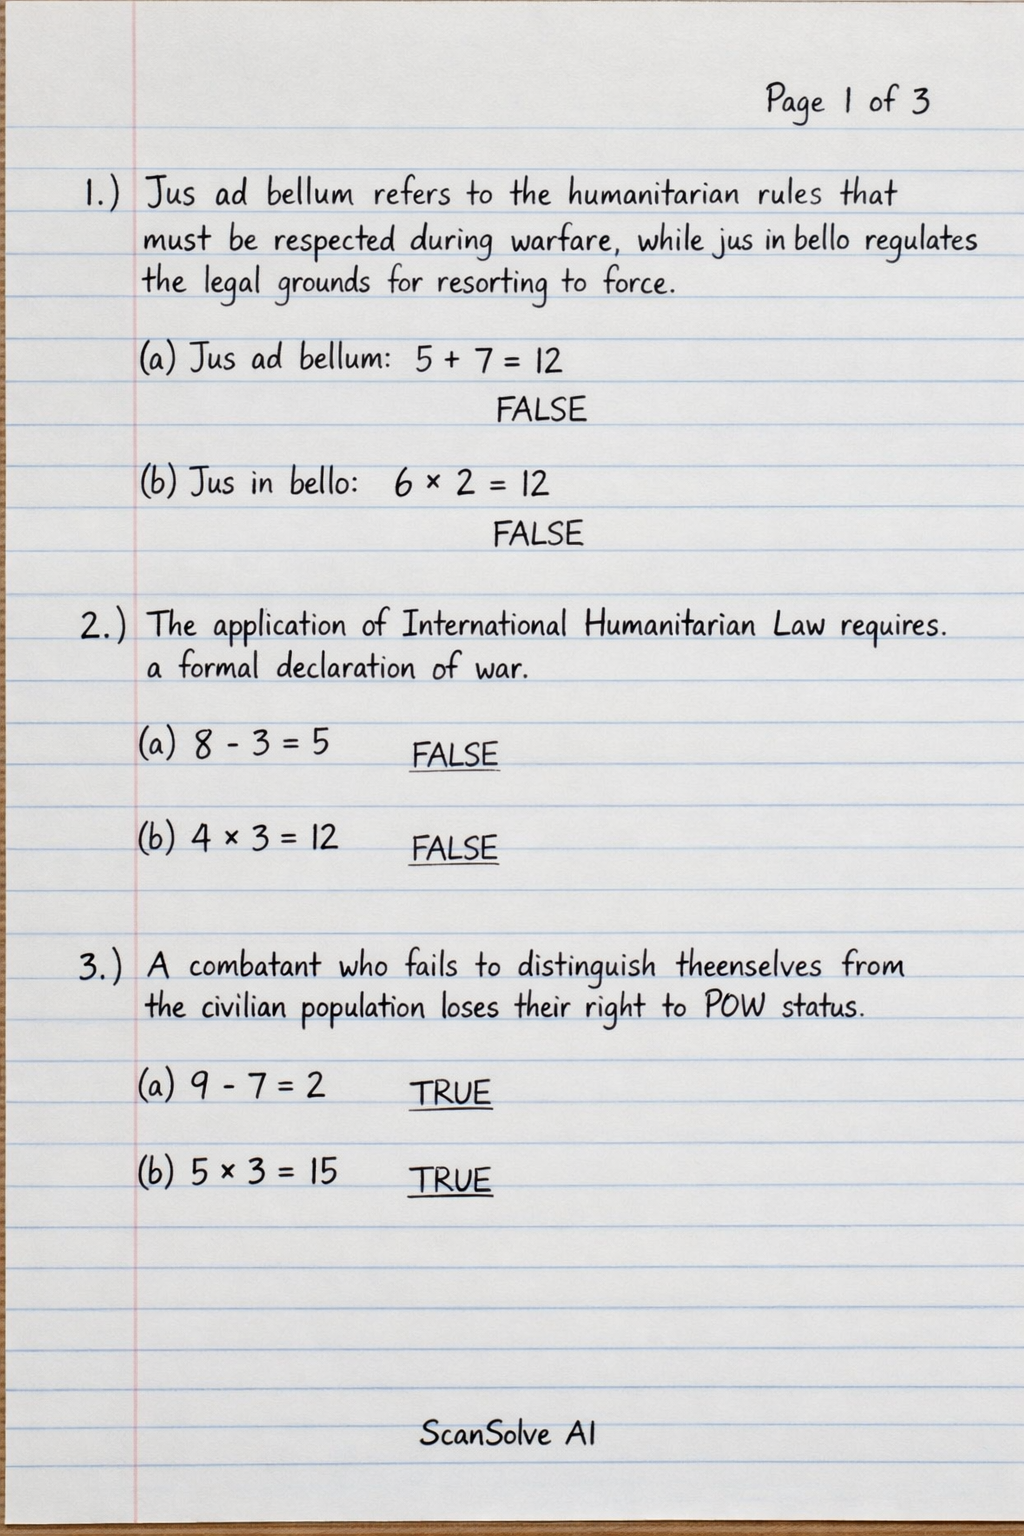 Page 1 of 3
1.) Jus ad bellum refers to the humanitarian rules that
must be respected during warfare, while jus in bello regulates
the legal grounds for resorting to force.
(a) Jus ad bellum: 5 + 7 = 12
FALSE
(b) Jus in bello: 6 × 2 = 12
FALSE
2.) The application of International Humanitarian Law requires.
a formal declaration of war.
(a) 8 - 3 = 5 FALSE
(b) 4 × 3 = 12 FALSE
3.) A combatant who fails to distinguish theenselves from
the civilian population loses their right to POW status.
(a) 9 - 7 = 2 TRUE
(b) 5 × 3 = 15 TRUE
ScanSolve AI